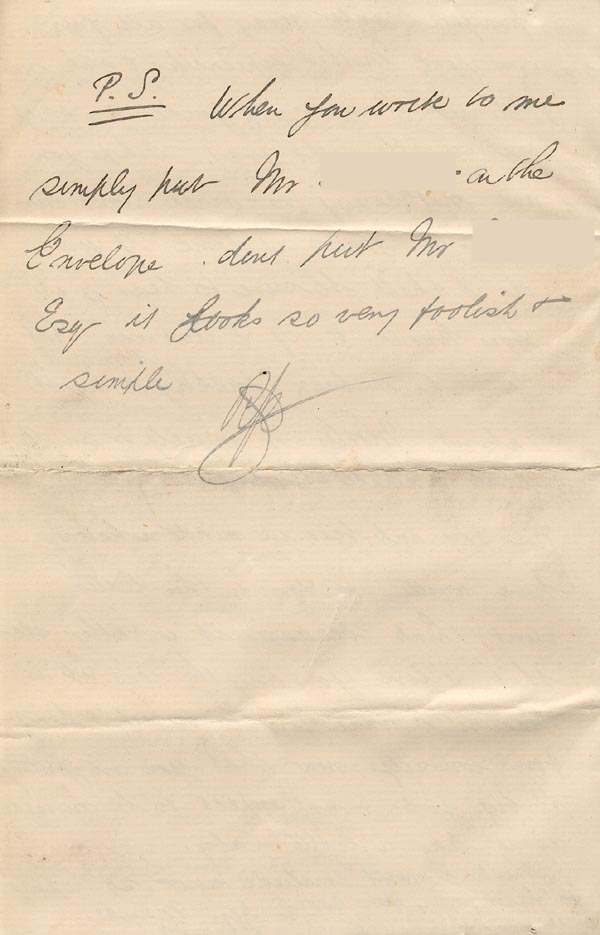 P. S. When you write to me
simply put Mr. on the
Envelope. dont put Mr
Esq it looks so very foolish &
simple